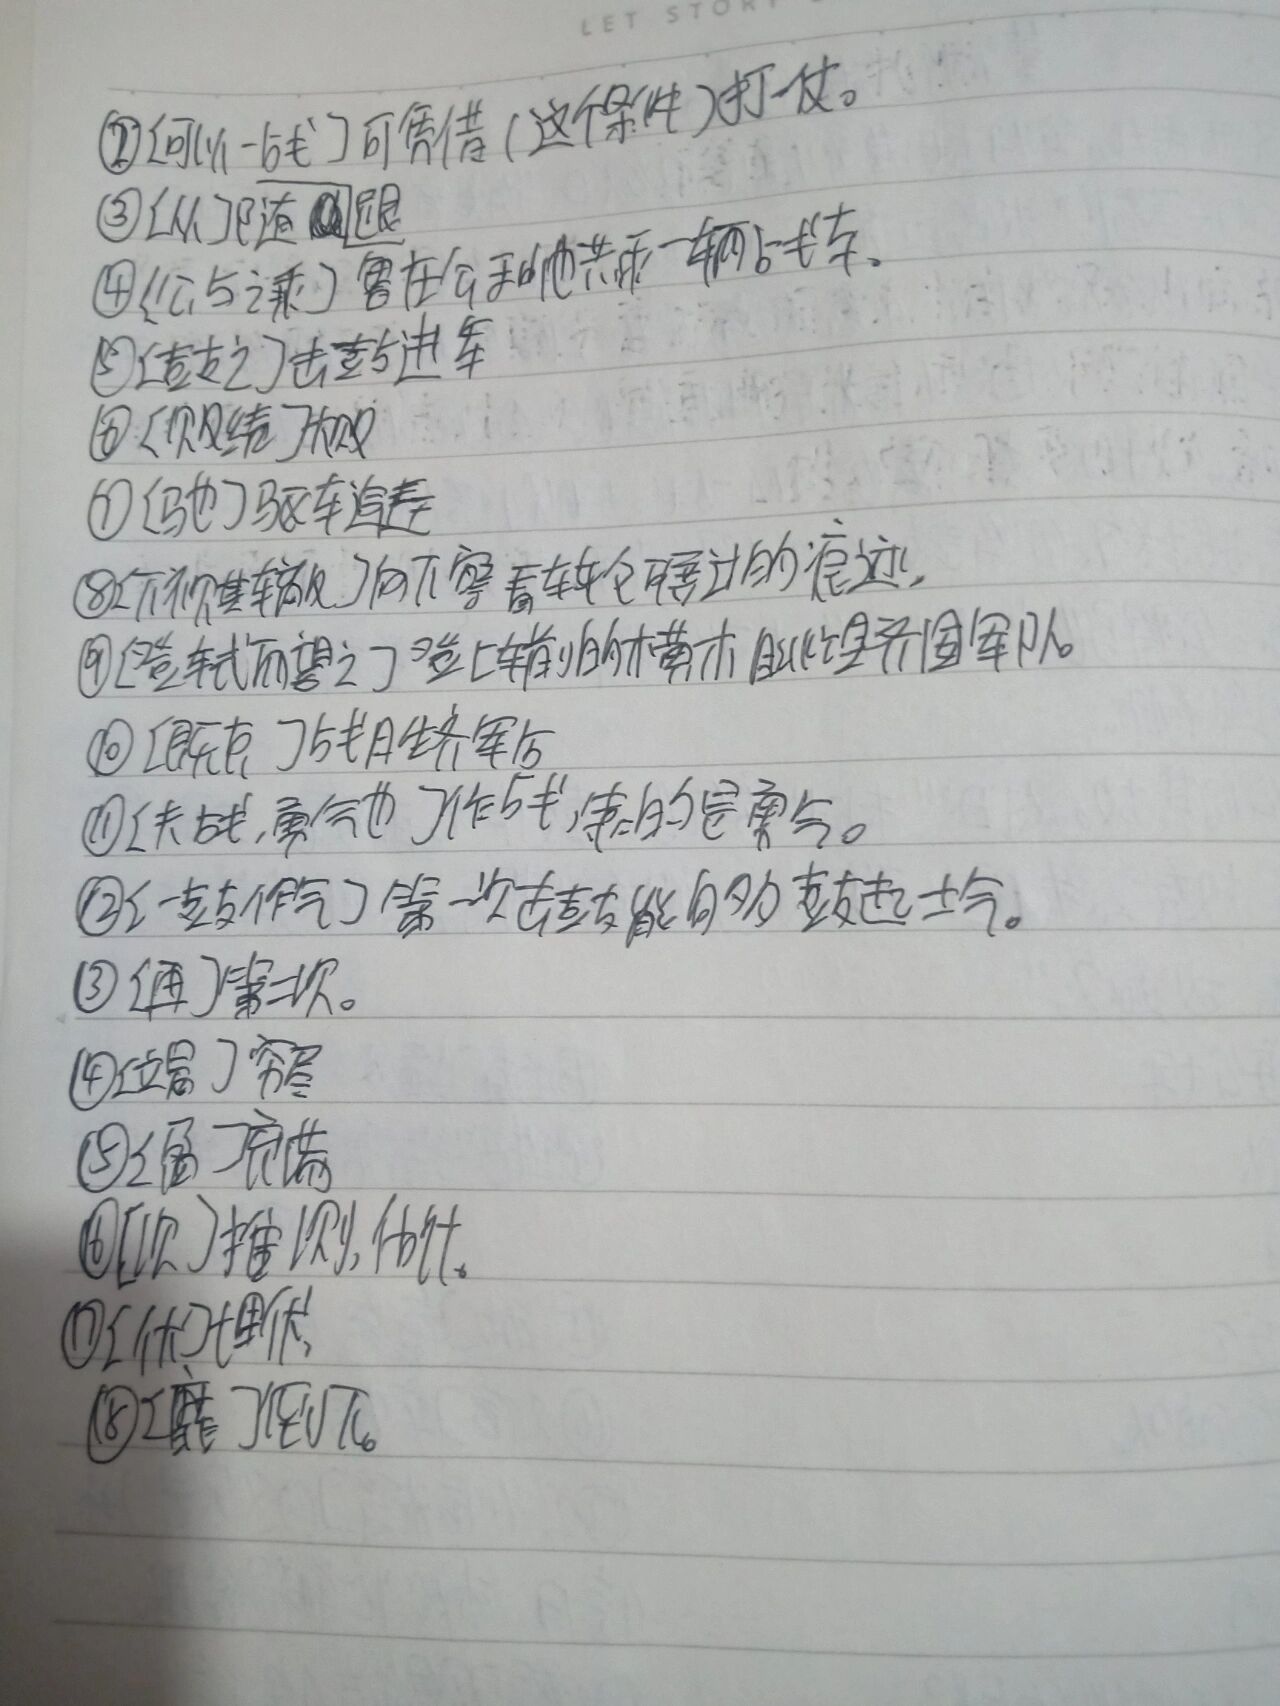 LET STORY
②[可以一战]可凭借(这个条件)打一仗。
③[从]跟随
④[公与之乘]鲁庄公和他共乘一辆战车。
⑤[鼓之]击鼓进军
⑥[败绩]大败
⑦[驰]驱车追赶
⑧[下视其辙]向下察看车轮碾过的痕迹。
⑨[登轼而望之]登上车前的横木眺望齐国军队。
⑩[既克]战胜齐军后
⑪[夫战,勇气也]作战,靠的是勇气。
⑫[一鼓作气]第一次击鼓能够鼓起士气。
③[再]第二次。
⑭[竭]穷尽
⑮[盈]充满
⑯[测]推测,估计。
⑰[伏]埋伏,
⑱[靡]倒下。